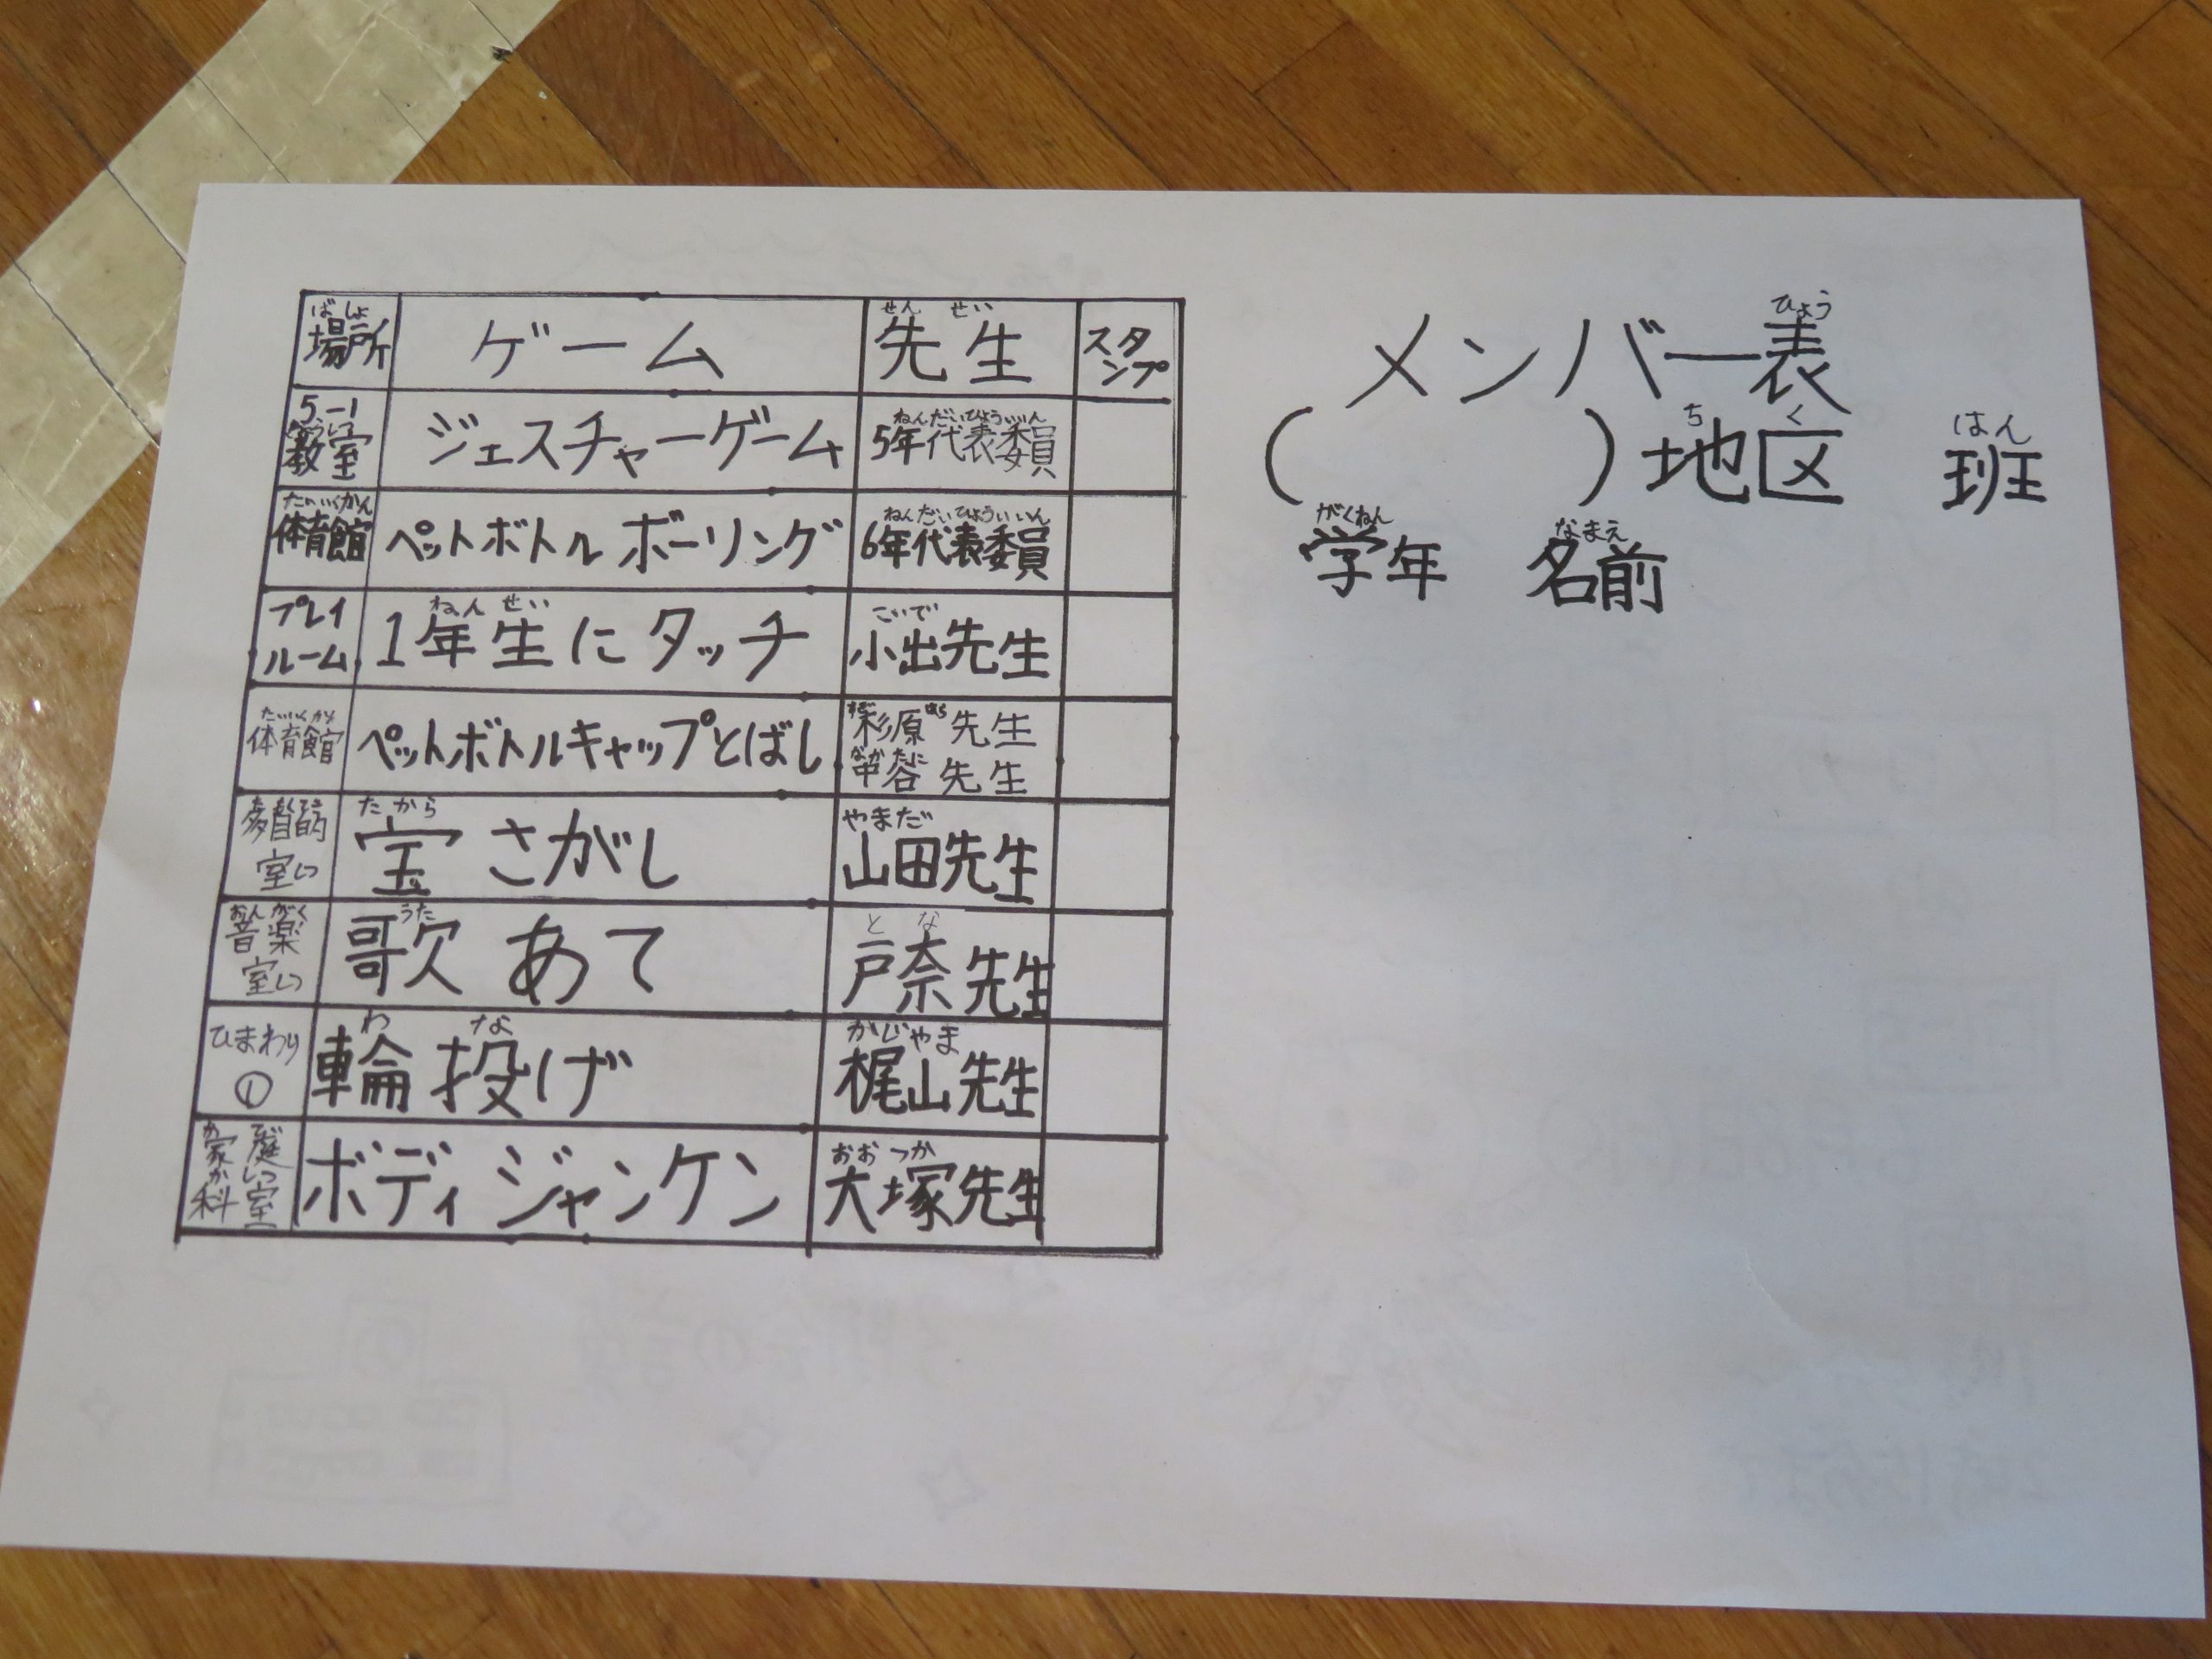 場所 ゲーム 先生 スタンプ
5-1教室 ジェスチャーゲーム 5年代表委員
体育館 ペットボトルボーリング 6年代表委員
プレイルーム 1年生にタッチ 小出先生
体育館 ペットボトルキャップとばし 杉原先生 中谷先生
多目的室 宝さがし 山田先生
音楽室 歌あて 戸奈先生
ひまわり① 輪投げ 梶山先生
家庭科室 ボディジャンケン 大塚先生
メンバー表
( )地区 班
学年 名前